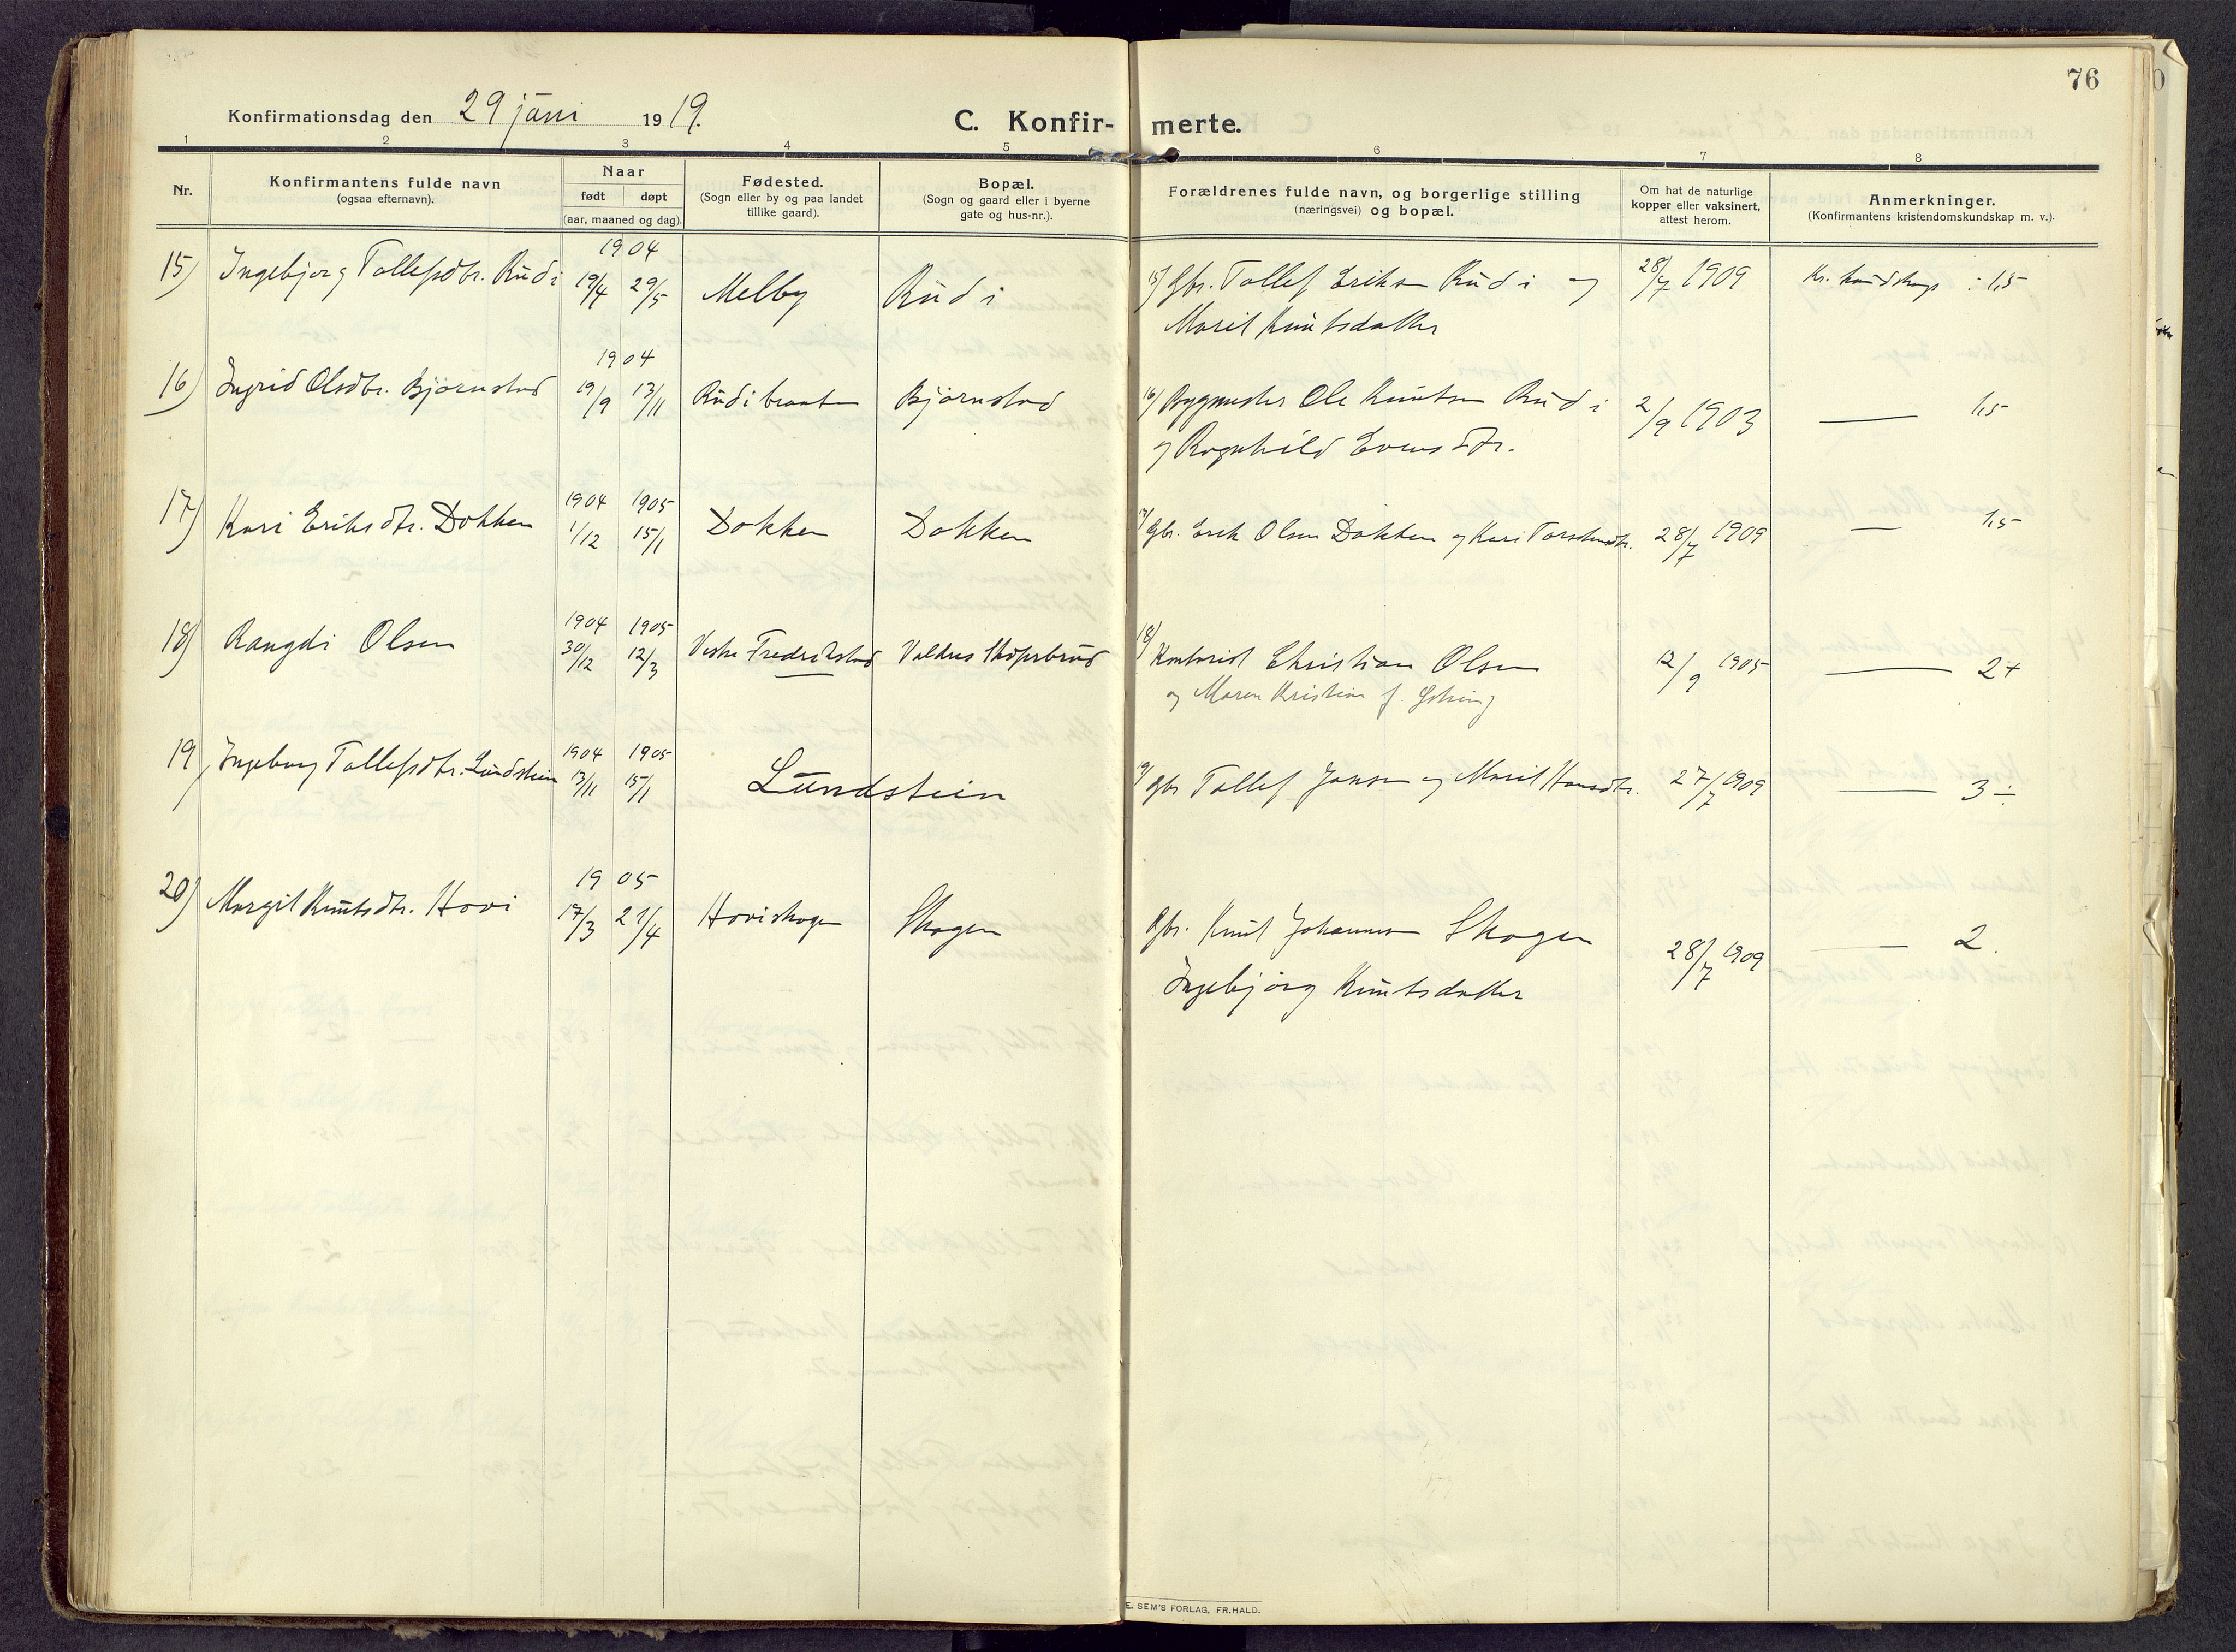 76
Konfirmationsdag den 29 juni 1919.
C. Konfirmerte.
1 2 3 4 5 6 7 8
Nr.
Konfirmantens fulde navn
(ogsaa efternavn).
Naar
født døpt
(aar, maaned og dag).
Fødested.
(Sogn eller by og paa landet
tillike gaard).
Bopæl.
(Sogn og gaard eller i byerne
gate og hus-nr.).
Forældrenes fulde navn, og borgerlige stilling
(næringsvei) og bopæl.
Om hat de naturlige
kopper eller vaksinert,
attest herom.
Anmerkninger.
(Konfirmantens kristendomskundskap m. v.).
1904
15) Ingebjørg Tollefsdtr. Rudi 19/4 29/5 Melby Rudi 15) Gbr. Tollef Eriksen Rudi og 28/7 1909 Kr. kundskap : 1,5
Marit Knutsdatter
1904
16) Ingrid Olsdtr. Bjørnstad 19/9 13/11 Rudibraaten Bjørnstad 16) Bygmester Ole Knutsen Rudi 2/9 1903 — 1,5
og Ragnhild Evensdtr.
1904 1905
17) Kari Eriksdtr. Dokken 1/12 15/1 Dokken Dokken 17) Gbr. Erik Olsen Dokken og Kari Torstensdtr. 28/7 1909 — 1,5
1904 1905
18) Rangdi Olsen 30/12 12/3 Vestre Fredrikstad 18) Kontorist Christian Olsen 12/9 1905 — 2+
og Maren Kristine f.
1904 1905
19) Ingeborg Tollefsdtr. Lundstein 13/11 15/1 Lundstein 19) Gbr Tollef Jonsen og Marit Hansdtr. 27/7 1909 — 3÷
1905
20) Margit Knutsdtr. Hovi 17/3 21/4 Hoviskogen Skogen Gbr. Knut Johannesen Skogen 28/7 1909 — 2.
Ingebjørg Knutsdatter
E. SEM'S FORLAG, FR.HALD.